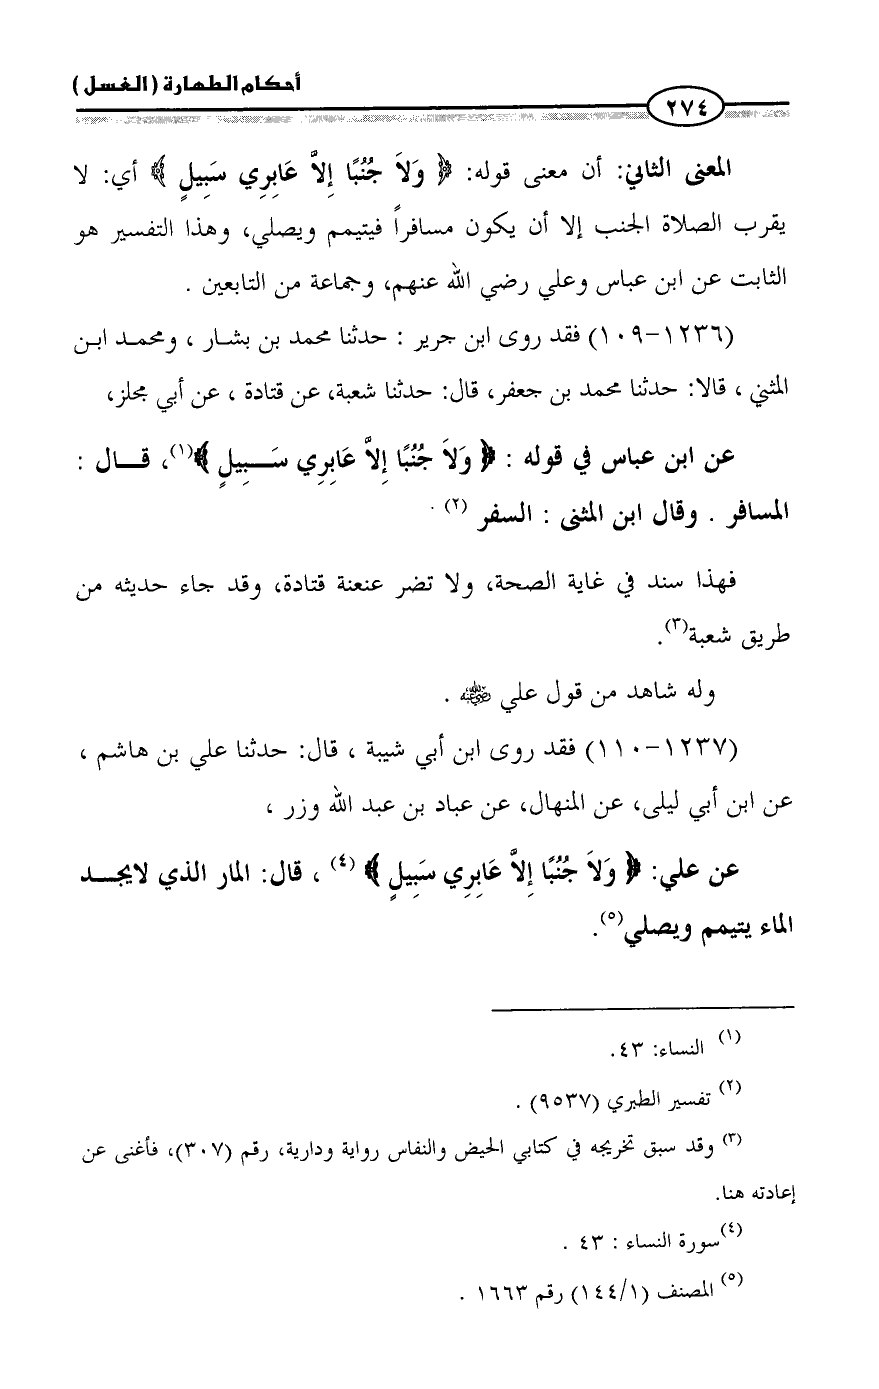 أحكام الطهارة (الغسل)
٢٧٤
المعنى الثاني: أن معنى قوله: ﴿ وَلاَ جُنُبًا إِلاَّ عَابِرِي سَبِيلٍ ﴾ أي: لا
يقرب الصلاة الجنب إلا أن يكون مسافراً فيتيمم ويصلي، وهذا التفسير هو
الثابت عن ابن عباس وعلي رضي الله عنهم، وجماعة من التابعين .
(١٢٣٦-١٠٩) فقد روى ابن جرير : حدثنا محمد بن بشار ، ومحمد ابن
المثني ، قالا: حدثنا محمد بن جعفر، قال: حدثنا شعبة، عن قتادة ، عن أبي مجلز،
عن ابن عباس في قوله : ﴿ وَلاَ جُنُبًا إِلاَّ عَابِرِي سَبِيلٍ ﴾(١)، قال :
المسافر . وقال ابن المثنى : السفر (٢) .
فهذا سند في غاية الصحة، ولا تضر عنعنة قتادة، وقد جاء حديثه من
طريق شعبة(٣).
وله شاهد من قول علي رضي الله عنه .
(١٢٣٧-١١٠) فقد روى ابن أبي شيبة ، قال: حدثنا علي بن هاشم ،
عن ابن أبي ليلى، عن المنهال، عن عباد بن عبد الله وزر ،
عن علي: ﴿ وَلاَ جُنُبًا إِلاَّ عَابِرِي سَبِيلٍ ﴾ (٤) ، قال: المار الذي لايجد
الماء يتيمم ويصلي(٥).
(١) النساء: ٤٣.
(٢) تفسير الطبري (٩٥٣٧) .
(٣) وقد سبق تخريجه في كتابي الحيض والنفاس رواية ودارية، رقم (٣٠٧)، فأغنى عن
إعادته هنا.
(٤)سورة النساء : ٤٣ .
(٥) المصنف (١٤٤/١) رقم ١٦٦٣ .